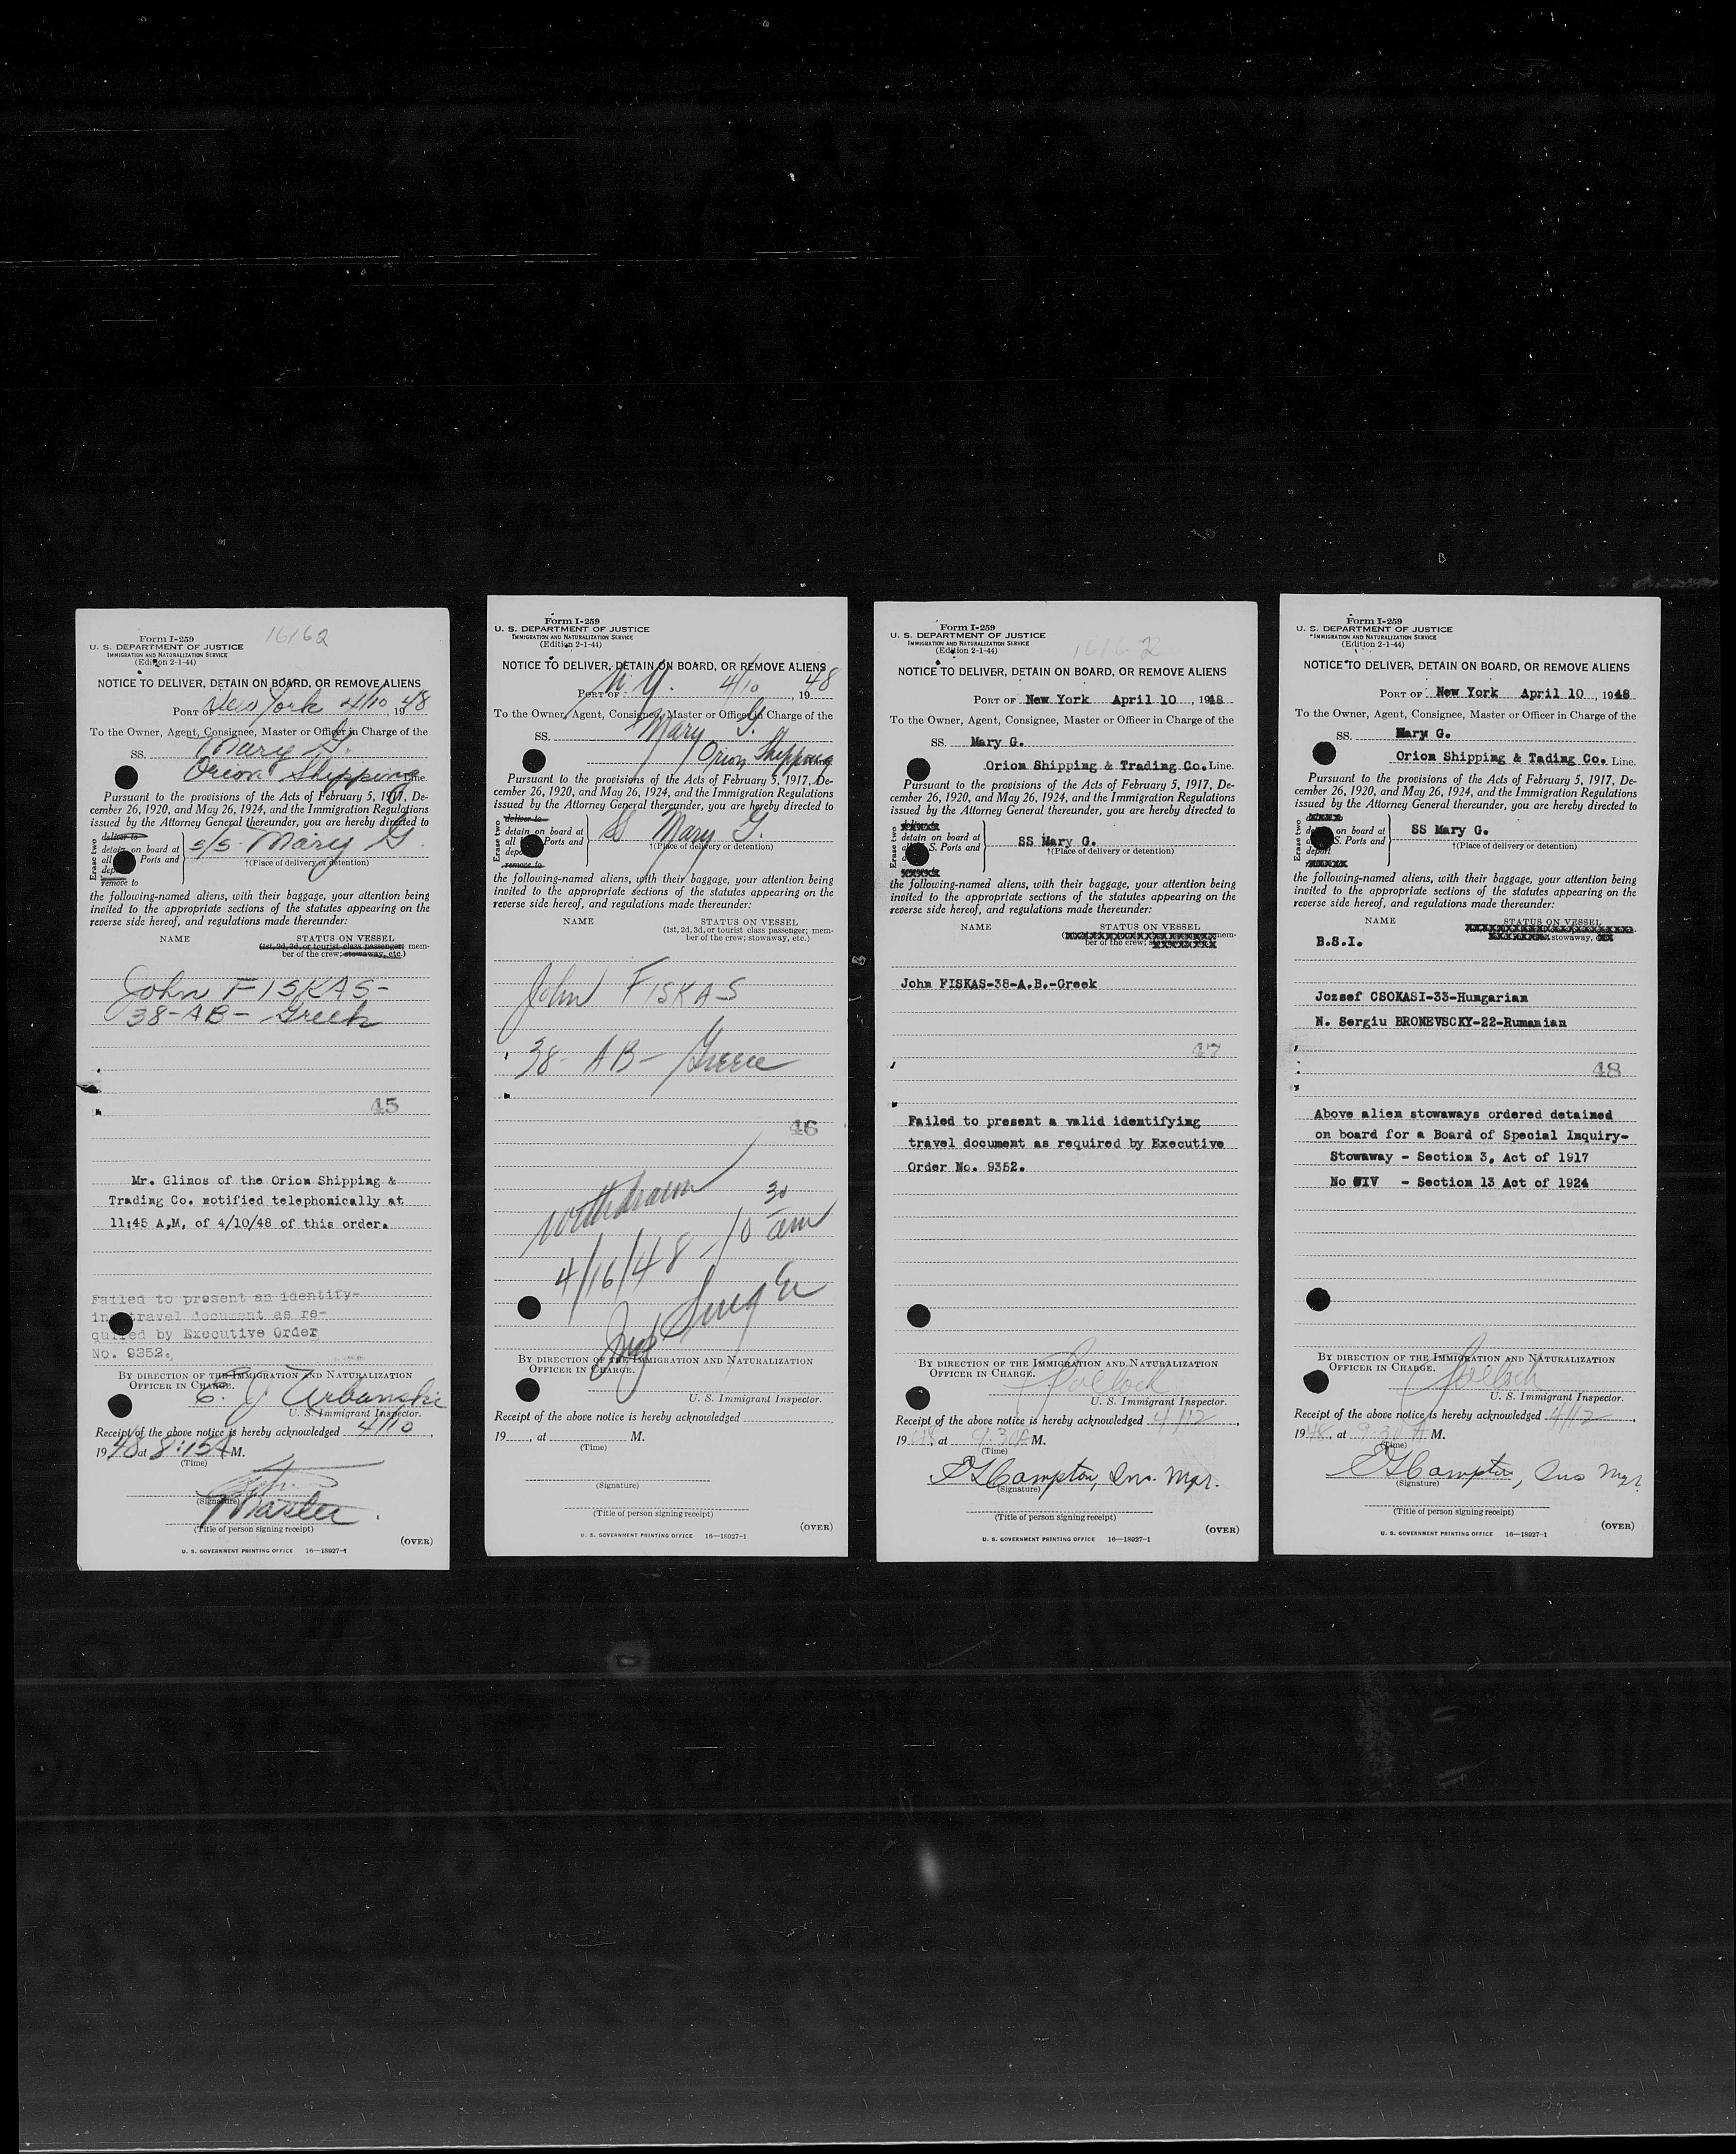 16162
Form I-259
U. S. DEPARTMENT OF JUSTICE
IMMIGRATION AND NATURALIZATION SERVICE
(Edition 2-1-44)
NOTICE TO DELIVER, DETAIN ON BOARD, OR REMOVE ALIENS
PORT OF New York 4/10, 1948
To the Owner, Agent, Consignee, Master or Officer in Charge of the
SS. Mary G.
Orion Shipping Line.
Pursuant to the provisions of the Acts of February 5, 1917, De-
cember 26, 1920, and May 26, 1924, and the Immigration Regulations
issued by the Attorney General thereunder, you are hereby directed to
Erase two
deliver to
detain on board at
all Ports and
dep
remove to
s/s. Mary G.
†(Place of delivery or detention)
the following-named aliens, with their baggage, your attention being
invited to the appropriate sections of the statutes appearing on the
reverse side hereof, and regulations made thereunder:
NAME STATUS ON VESSEL
(1st, 2d, 3d, or tourist class passenger; mem-
ber of the crew; stowaway, etc.)
John FISKAS-
38-AB- Greek
45
Mr. Glinos of the Orion Shipping &
Trading Co. notified telephonically at
11:45 A,M, of 4/10/48 of this order.
Failed to present an identify-
ing travel document as re-
quired by Executive Order
No. 9352.
BY DIRECTION OF THE IMMIGRATION AND NATURALIZATION
OFFICER IN CHARGE.
E. J Urbanski
U. S. Immigrant Inspector.
Receipt of the above notice is hereby acknowledged 4/10,
1948 at 8:15 A M.
(Time)
(Signature)
Master
(Title of person signing receipt)
(OVER)
U. S. GOVERNMENT PRINTING OFFICE 16—18927-1
Form I-259
U. S. DEPARTMENT OF JUSTICE
IMMIGRATION AND NATURALIZATION SERVICE
(Edition 2-1-44)
NOTICE TO DELIVER, DETAIN ON BOARD, OR REMOVE ALIENS
PORT OF N.Y. 4/10, 1948
To the Owner, Agent, Consignee, Master or Officer in Charge of the
SS. Mary G.
Orion Shipping
Pursuant to the provisions of the Acts of February 5, 1917, De-
cember 26, 1920, and May 26, 1924, and the Immigration Regulations
issued by the Attorney General thereunder, you are hereby directed to
Erase two
deliver to
detain on board at
all Ports and
depo
remove to
SS Mary G.
†(Place of delivery or detention)
the following-named aliens, with their baggage, your attention being
invited to the appropriate sections of the statutes appearing on the
reverse side hereof, and regulations made thereunder:
NAME STATUS ON VESSEL
(1st, 2d, 3d, or tourist class passenger; mem-
ber of the crew; stowaway, etc.)
John FISKAS
38- AB- Greece
46
Withdrawn
4/16/48 - 10 30 am
BY DIRECTION OF THE IMMIGRATION AND NATURALIZATION
OFFICER IN CHARGE.
U. S. Immigrant Inspector.
Receipt of the above notice is hereby acknowledged
19 , at M.
(Time)
(Signature)
(Title of person signing receipt)
(OVER)
U. S. GOVERNMENT PRINTING OFFICE 16—18927-1
Form I-259
U. S. DEPARTMENT OF JUSTICE
IMMIGRATION AND NATURALIZATION SERVICE
(Edition 2-1-44)
16162
NOTICE TO DELIVER, DETAIN ON BOARD, OR REMOVE ALIENS
PORT OF New York April 10, 1948
To the Owner, Agent, Consignee, Master or Officer in Charge of the
SS. Mary G.
Orion Shipping & Trading Co. Line.
Pursuant to the provisions of the Acts of February 5, 1917, De-
cember 26, 1920, and May 26, 1924, and the Immigration Regulations
issued by the Attorney General thereunder, you are hereby directed to
Erase two
detain on board at
S. Ports and
SS Mary G.
†(Place of delivery or detention)
the following-named aliens, with their baggage, your attention being
invited to the appropriate sections of the statutes appearing on the
reverse side hereof, and regulations made thereunder:
NAME STATUS ON VESSEL
mem-
ber of the crew;
John FISKAS-38-A.B.-Greek
47
Failed to present a valid identifying
travel document as required by Executive
Order No. 9352.
BY DIRECTION OF THE IMMIGRATION AND NATURALIZATION
OFFICER IN CHARGE.
Pollock
U. S. Immigrant Inspector.
Receipt of the above notice is hereby acknowledged 4/12,
1948, at 9:30A M.
(Time)
(Signature)
(Title of person signing receipt)
(OVER)
U. S. GOVERNMENT PRINTING OFFICE 16—18927-1
Form I-259
U. S. DEPARTMENT OF JUSTICE
IMMIGRATION AND NATURALIZATION SERVICE
(Edition 2-1-44)
NOTICE TO DELIVER, DETAIN ON BOARD, OR REMOVE ALIENS
PORT OF New York April 10, 1948
To the Owner, Agent, Consignee, Master or Officer in Charge of the
SS. Mary G.
Orion Shipping & Tading Co. Line.
Pursuant to the provisions of the Acts of February 5, 1917, De-
cember 26, 1920, and May 26, 1924, and the Immigration Regulations
issued by the Attorney General thereunder, you are hereby directed to
Erase two
on board at
S. Ports and
deport
SS Mary G.
†(Place of delivery or detention)
the following-named aliens, with their baggage, your attention being
invited to the appropriate sections of the statutes appearing on the
reverse side hereof, and regulations made thereunder:
NAME STATUS ON VESSEL
stowaway,
B.S.I.
Jozsef CSOKASI-33-Hungarian
N. Sergiu BRONEVSCKY-22-Rumanian
48
Above alien stowaways ordered detained
on board for a Board of Special Inquiry-
Stowaway - Section 3, Act of 1917
No QIV - Section 13 Act of 1924
BY DIRECTION OF THE IMMIGRATION AND NATURALIZATION
OFFICER IN CHARGE.
Pollock
U. S. Immigrant Inspector.
Receipt of the above notice is hereby acknowledged 4/12,
1948, at 9:30 A M.
(Time)
(Signature)
(Title of person signing receipt)
(OVER)
U. S. GOVERNMENT PRINTING OFFICE 16—18927-1